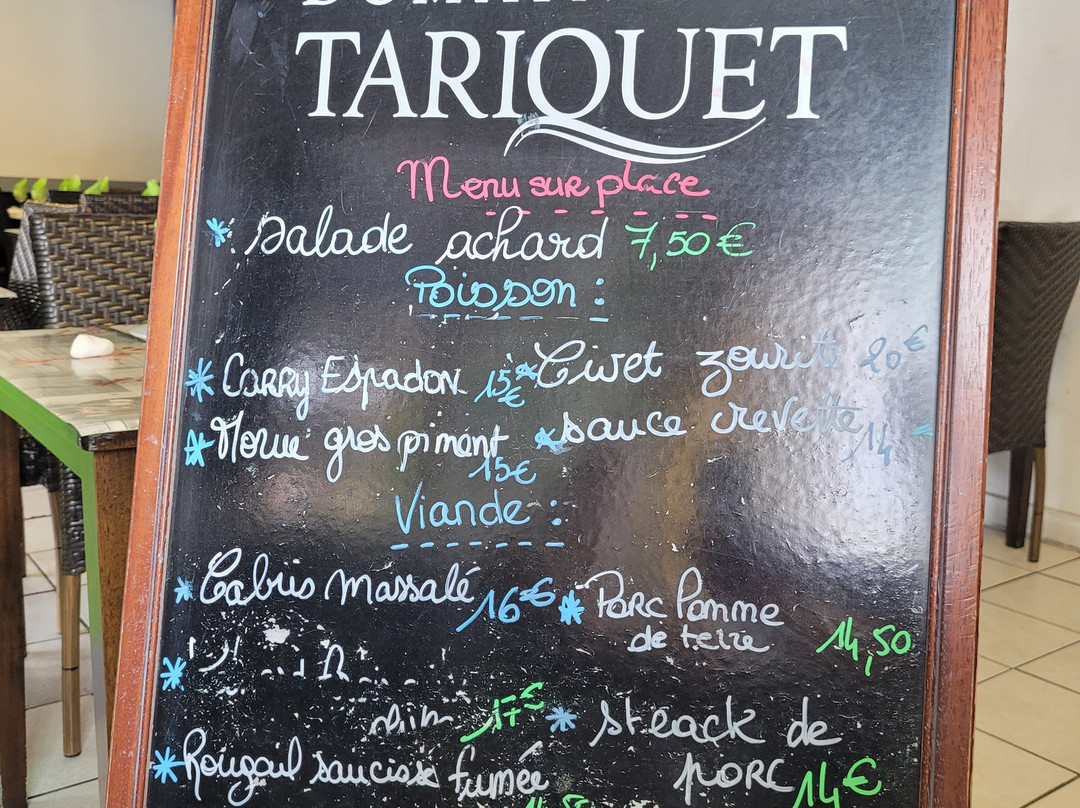 TARIQUET
Menu sur place
* Salade achard 7,50€
Poisson :
* Carry Espadon 15€
* Civet zourite 20€
* Morue gros piment 15€
* sauce crevette 14
Viande :
* Cabris Massalé 16€
* Porc Pomme de terre 14,50
* 17€
* steack de porc 14€
* Rougail saucisse fumée